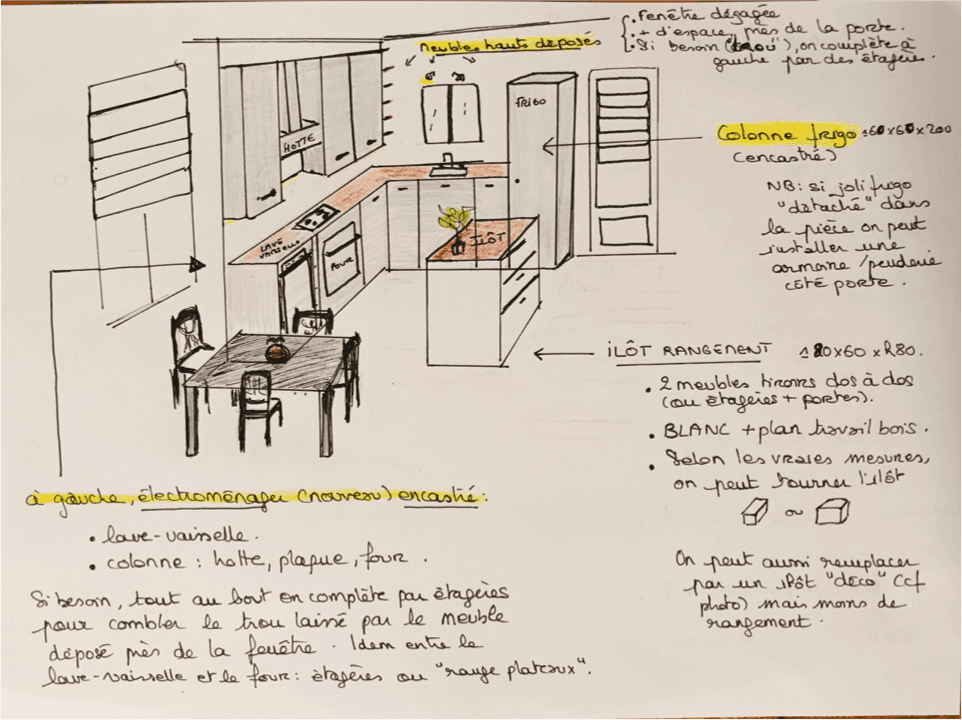 . Fenêtre dégagée
. + d'espace, près de la porte.
. Si besoin ("trou"), on complète à
gauche par des étagères.
meubles hauts déposés
FRIGO
HOTTE
Colonne frigo 60x60x200
(encastré)
NB: si joli frigo
"détaché" dans
la pièce on peut
installer une
armoire / penderie
côté porte.
LAVE
VAISSELLE
FOUR
ILÔT
ILÔT RANGEMENT 120x60x
. 2 meubles tiroirs dos à dos
(ou étagères + portes).
. BLANC + plan travail bois.
. Selon les vraies mesures,
on peut tourner l'ilôt
ou
On peut aussi remplacer
par un ilôt "déco" (cf
photo) mais moins de
rangement.
à gauche, électroménager (nouveau) encastré:
. lave-vaisselle.
. colonne : hotte, plaque, four.
Si besoin, tout au bout on complète par étagères
pour combler le trou laissé par le meuble
déposé près de la fenêtre. Idem entre le
lave-vaisselle et le four: étagères ou "range plateaux".